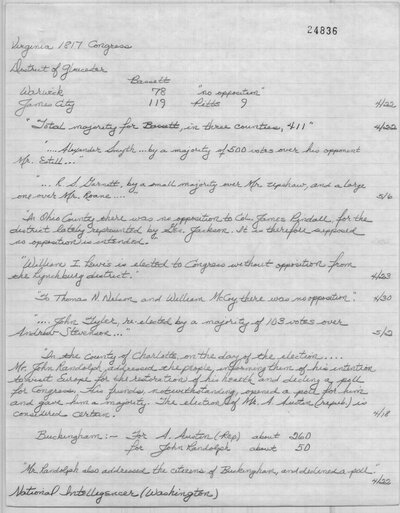 24836
Virginia 1817 Congress
District of Gloucester
Bassett
Warwick 78 "no opposition"
James City 119 Pitts 9 4/22
"Total majority for Bassett, in three counties, 411" 4/22
".... Alexander Smyth ... by a majority of 500 votes over his opponent
Mr. Estill..."
"... R. S. Garnett, by a small majority over Mr. Upshaw, and a large
one over Mr. Roane...." 5/6
"In Ohio County there was no opposition to Col. James Pindall, for the
district lately represented by Gen. Jackson. It is therefore supposed
no opposition is intended."
"William J. Lewis is elected to Congress without opposition from
the Lynchburg district." 4/23
"To Thomas N. Nelson and William McCoy there was no opposition." 4/30
".... John Tyler, re-elected by a majority of 103 votes over
Andrew Stevenson..." 5/2
"In the County of Charlotte, on the day of the election....
Mr. John Randolph addressed the people, informing them of his intention
to visit Europe for the restoration of his health and decling a poll
for Congress. His friends, notwithstanding, opened a poll for him
and gave him a majority. The election of Mr. A. Austin (repub.) is
considered certain. 4/18
Buckingham:- For A. Austin (Rep) about 260
for John Randolph about 50
"Mr. Randolph also addressed the citizens of Buckingham, and declined a poll."
4/22
National Intelligencer (Washington)